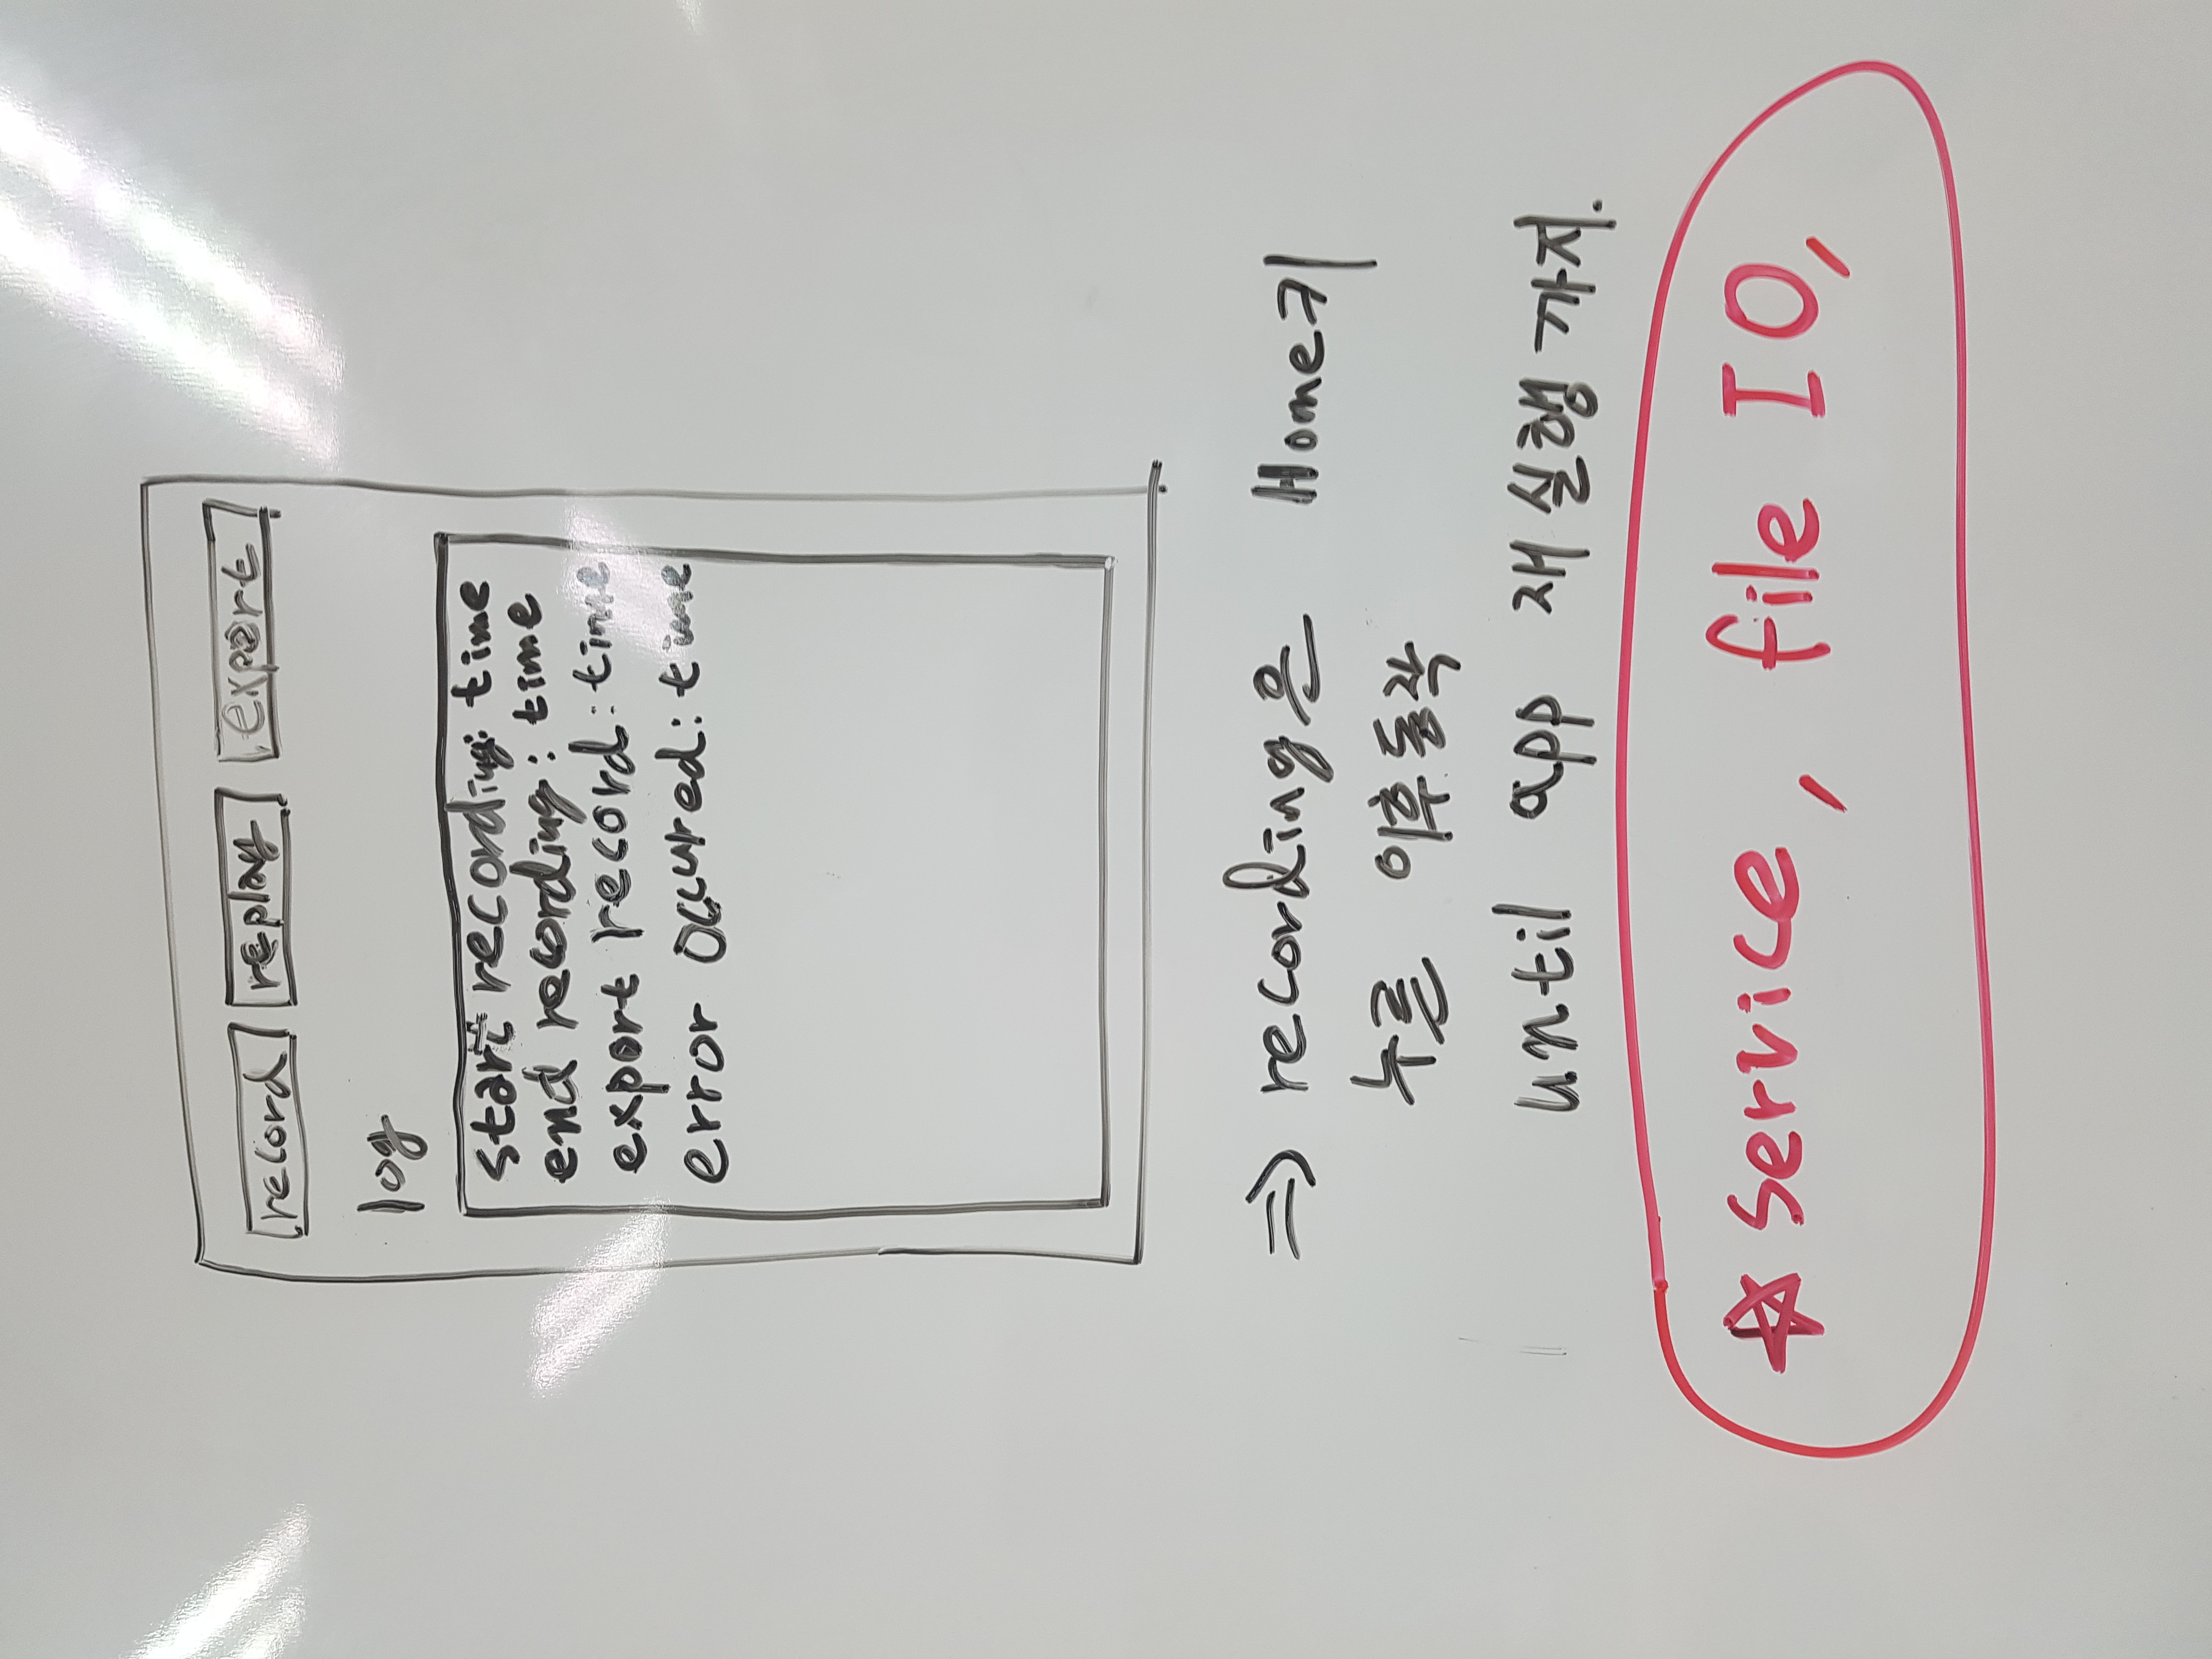 record replay export
log
start recording: time
end recording: time
export record: time
error occured: time
⇒ recording은 Home키
누른 이후 동작
until app 재실행 까지.
☆ service, file IO,